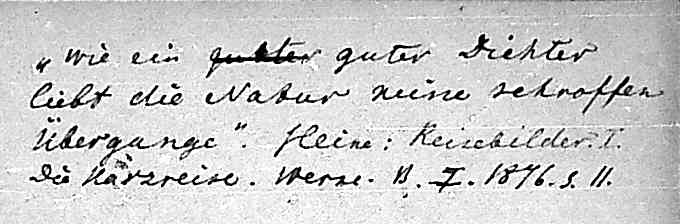 „Wie ein guter Dichter
liebt die Natur keine schroffen
Übergange". Heine: Reisebilder. I.
Die Harzreise. Werke. B. I. 1876. S. 11.